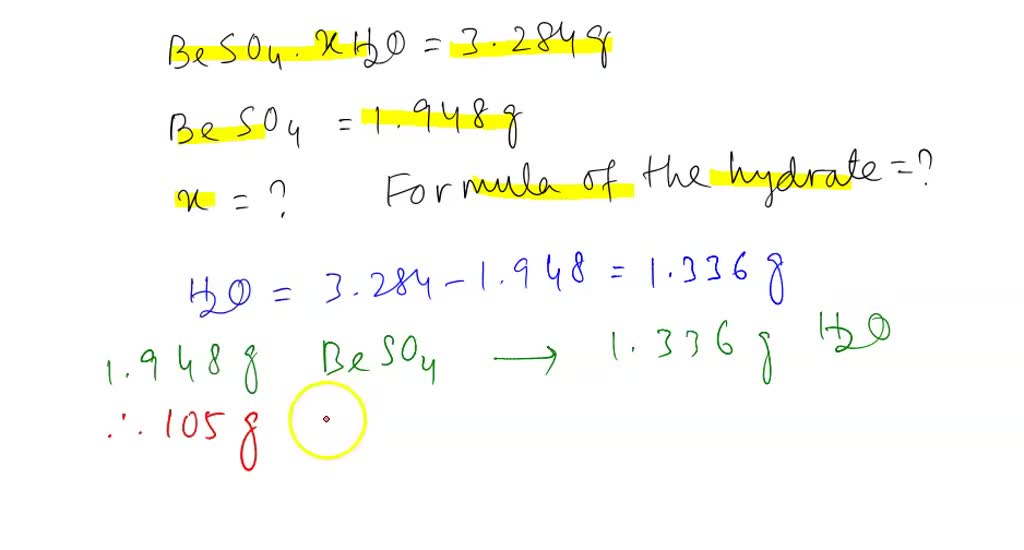 BeSO4.xH2O = 3.284g
BeSO4 = 1.948g
x = ? Formula of the hydrate = ?
H2O = 3.284 - 1.948 = 1.336 g
1.948g BeSO4 → 1.336 g H2O
∴ 105 g